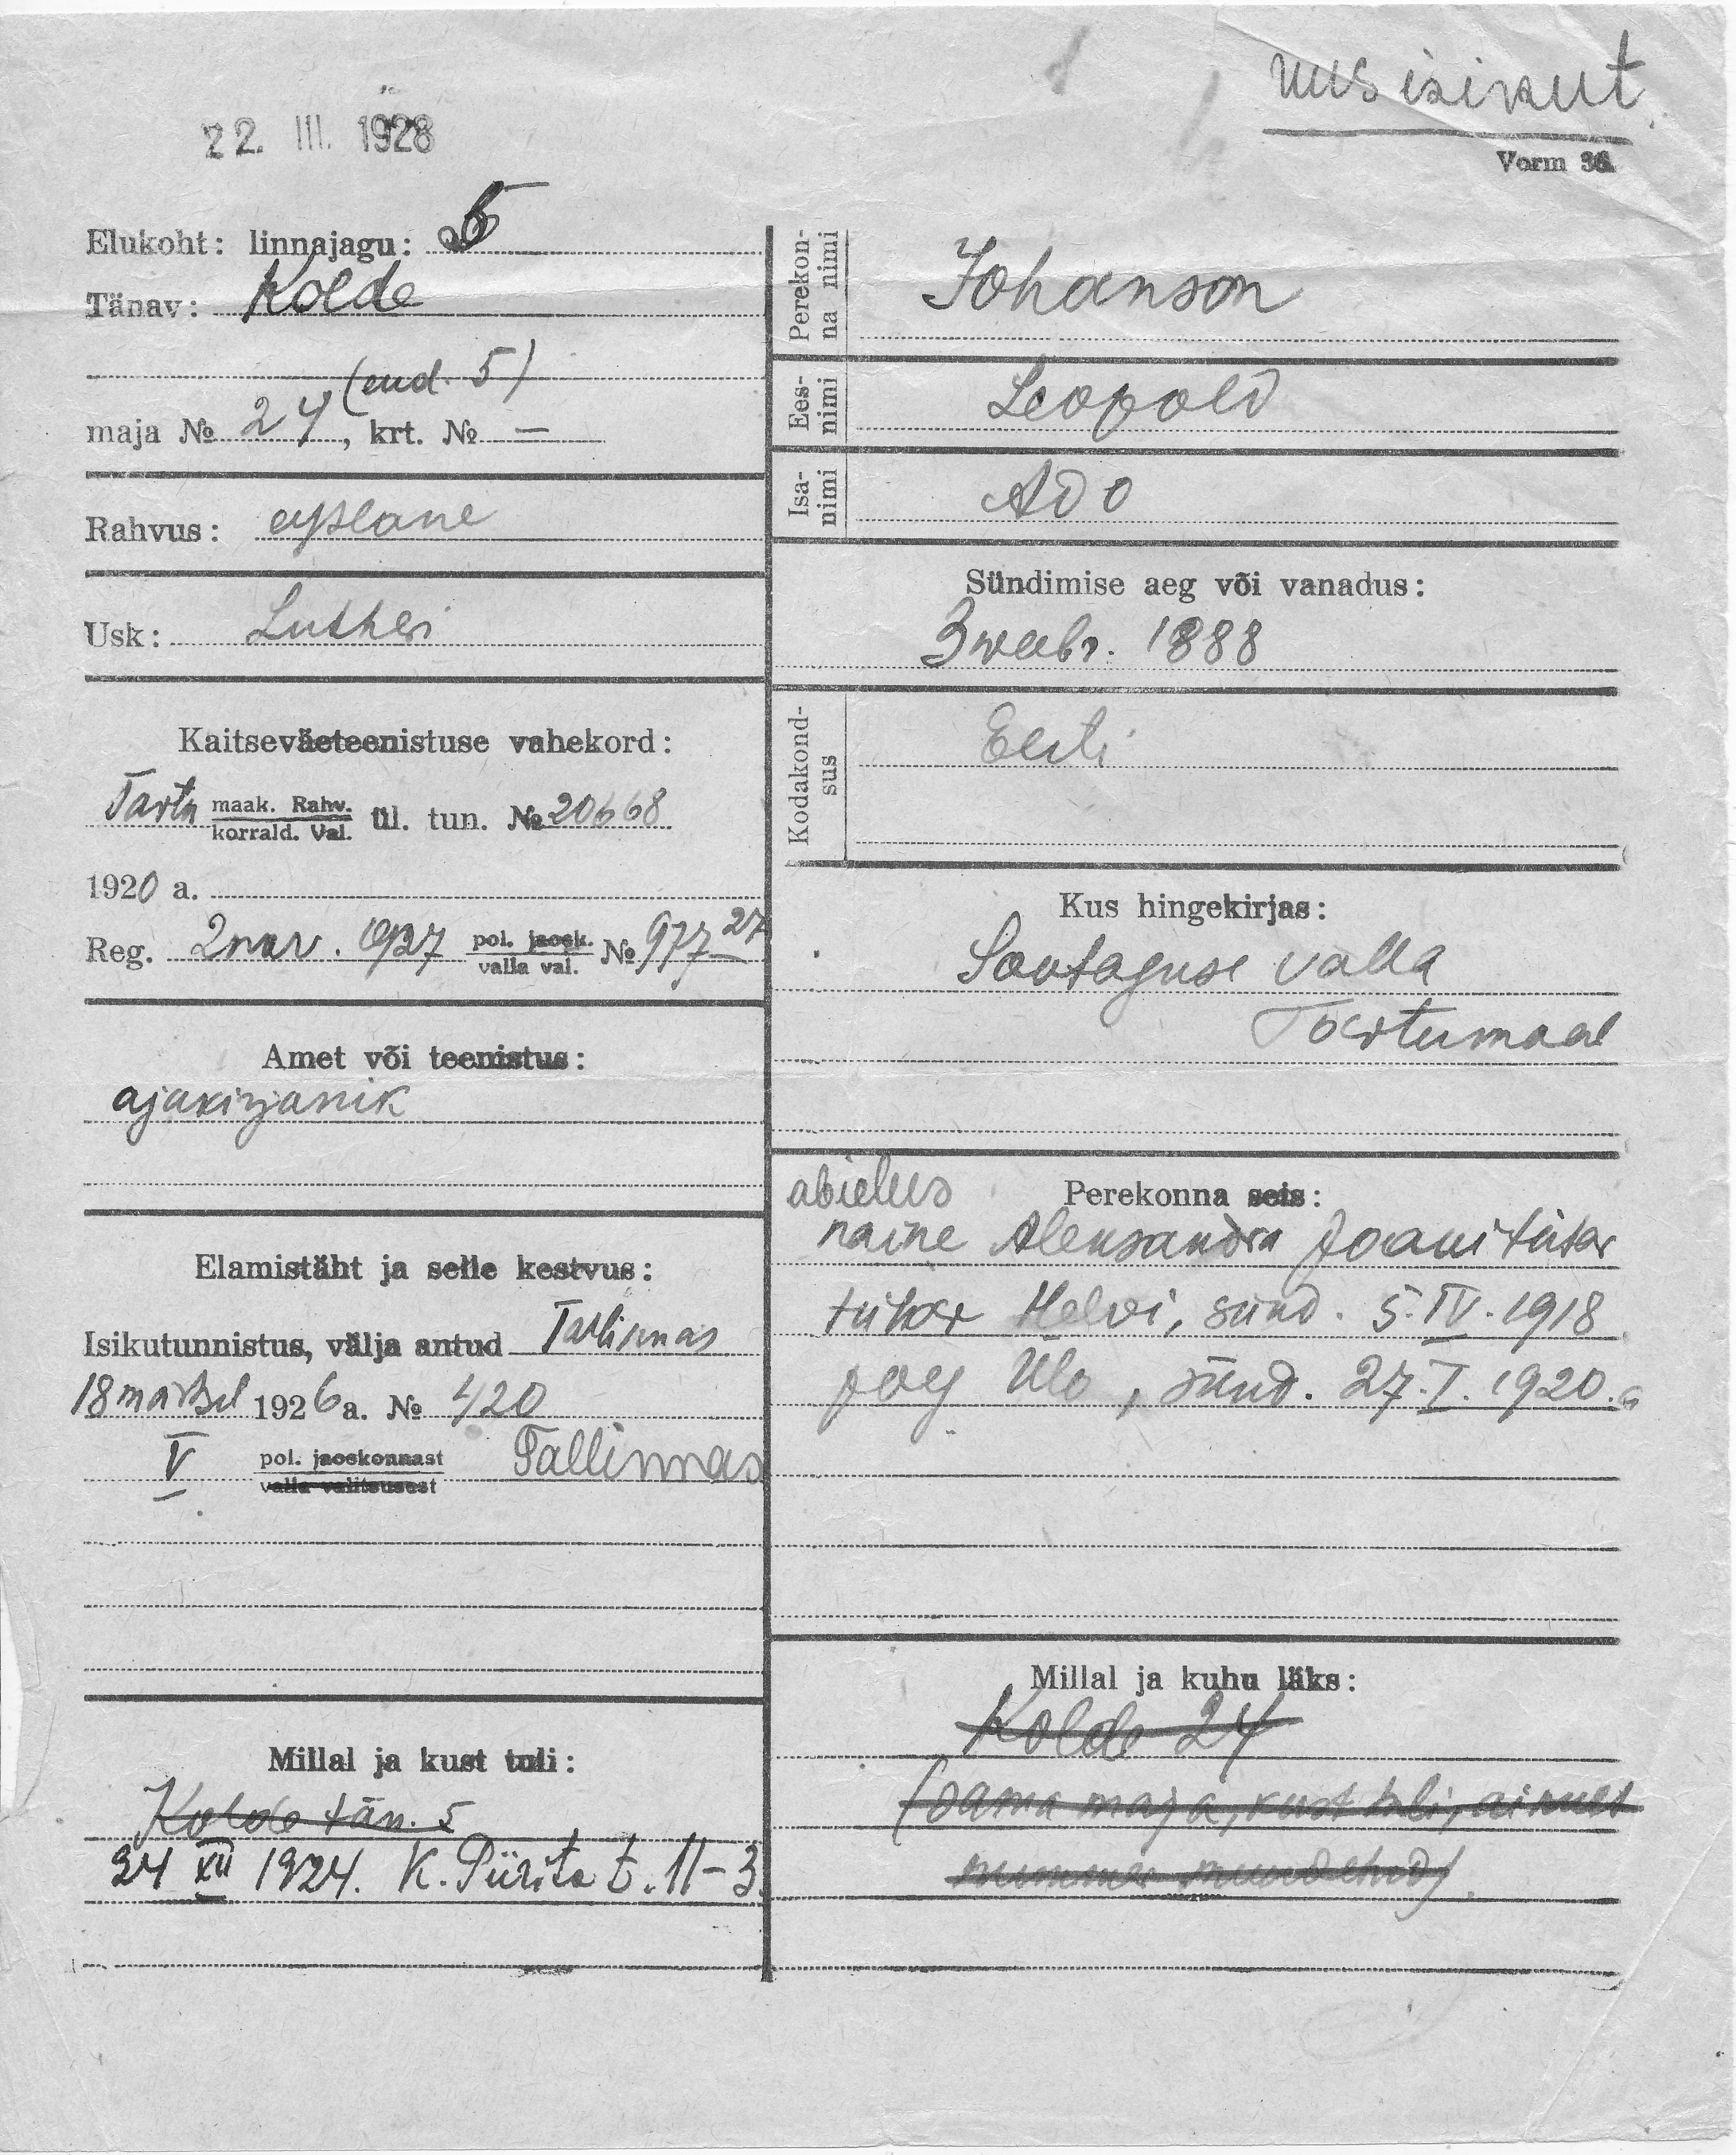 uus isikut
22. III. 1928
Vorm 36.
Elukoht: linnajagu:
Tänav: Kolde
(end. 5)
maja № 24, krt. № —
Rahvus: eestlane
Usk: Lutheri
Kaitseväeteenistuse vahekord:
Tartu maak. Rahv.
korrald. Val. ül. tun. № 20668
1920 a.
Reg. 2 nov. 1927 pol. jaosk.
valla val. № 977 27
Amet või teenistus:
ajakirjanik
Elamistäht ja selle kestvus:
Isikutunnistus, välja antud Tallinnas
18 märtsil 1926 a. № 420
V pol. jaoskonnast Tallinnas
valla valitsusest
Millal ja kust tuli:
Kolde tän. 5
24 XII 1924. K. Piirita t. 11-3
Perekonna nimi
Johanson
Eesnimi
Leopold
Isanimi
Ado
Sündimise aeg või vanadus:
3 weebr. 1888
Kodakondsus
Eesti
Kus hingekirjas:
Sootaguse valla
Tartumaal
abielus Perekonna seis:
naine Aleksandra Jaani tütar
tütar Helvi, sünd. 5.IV.1918
poeg Ülo, sünd. 27.I.1920.a
Millal ja kuhu läks:
Kolde 24
(sama maja, kust tuli, ainult
nummer muudetud).